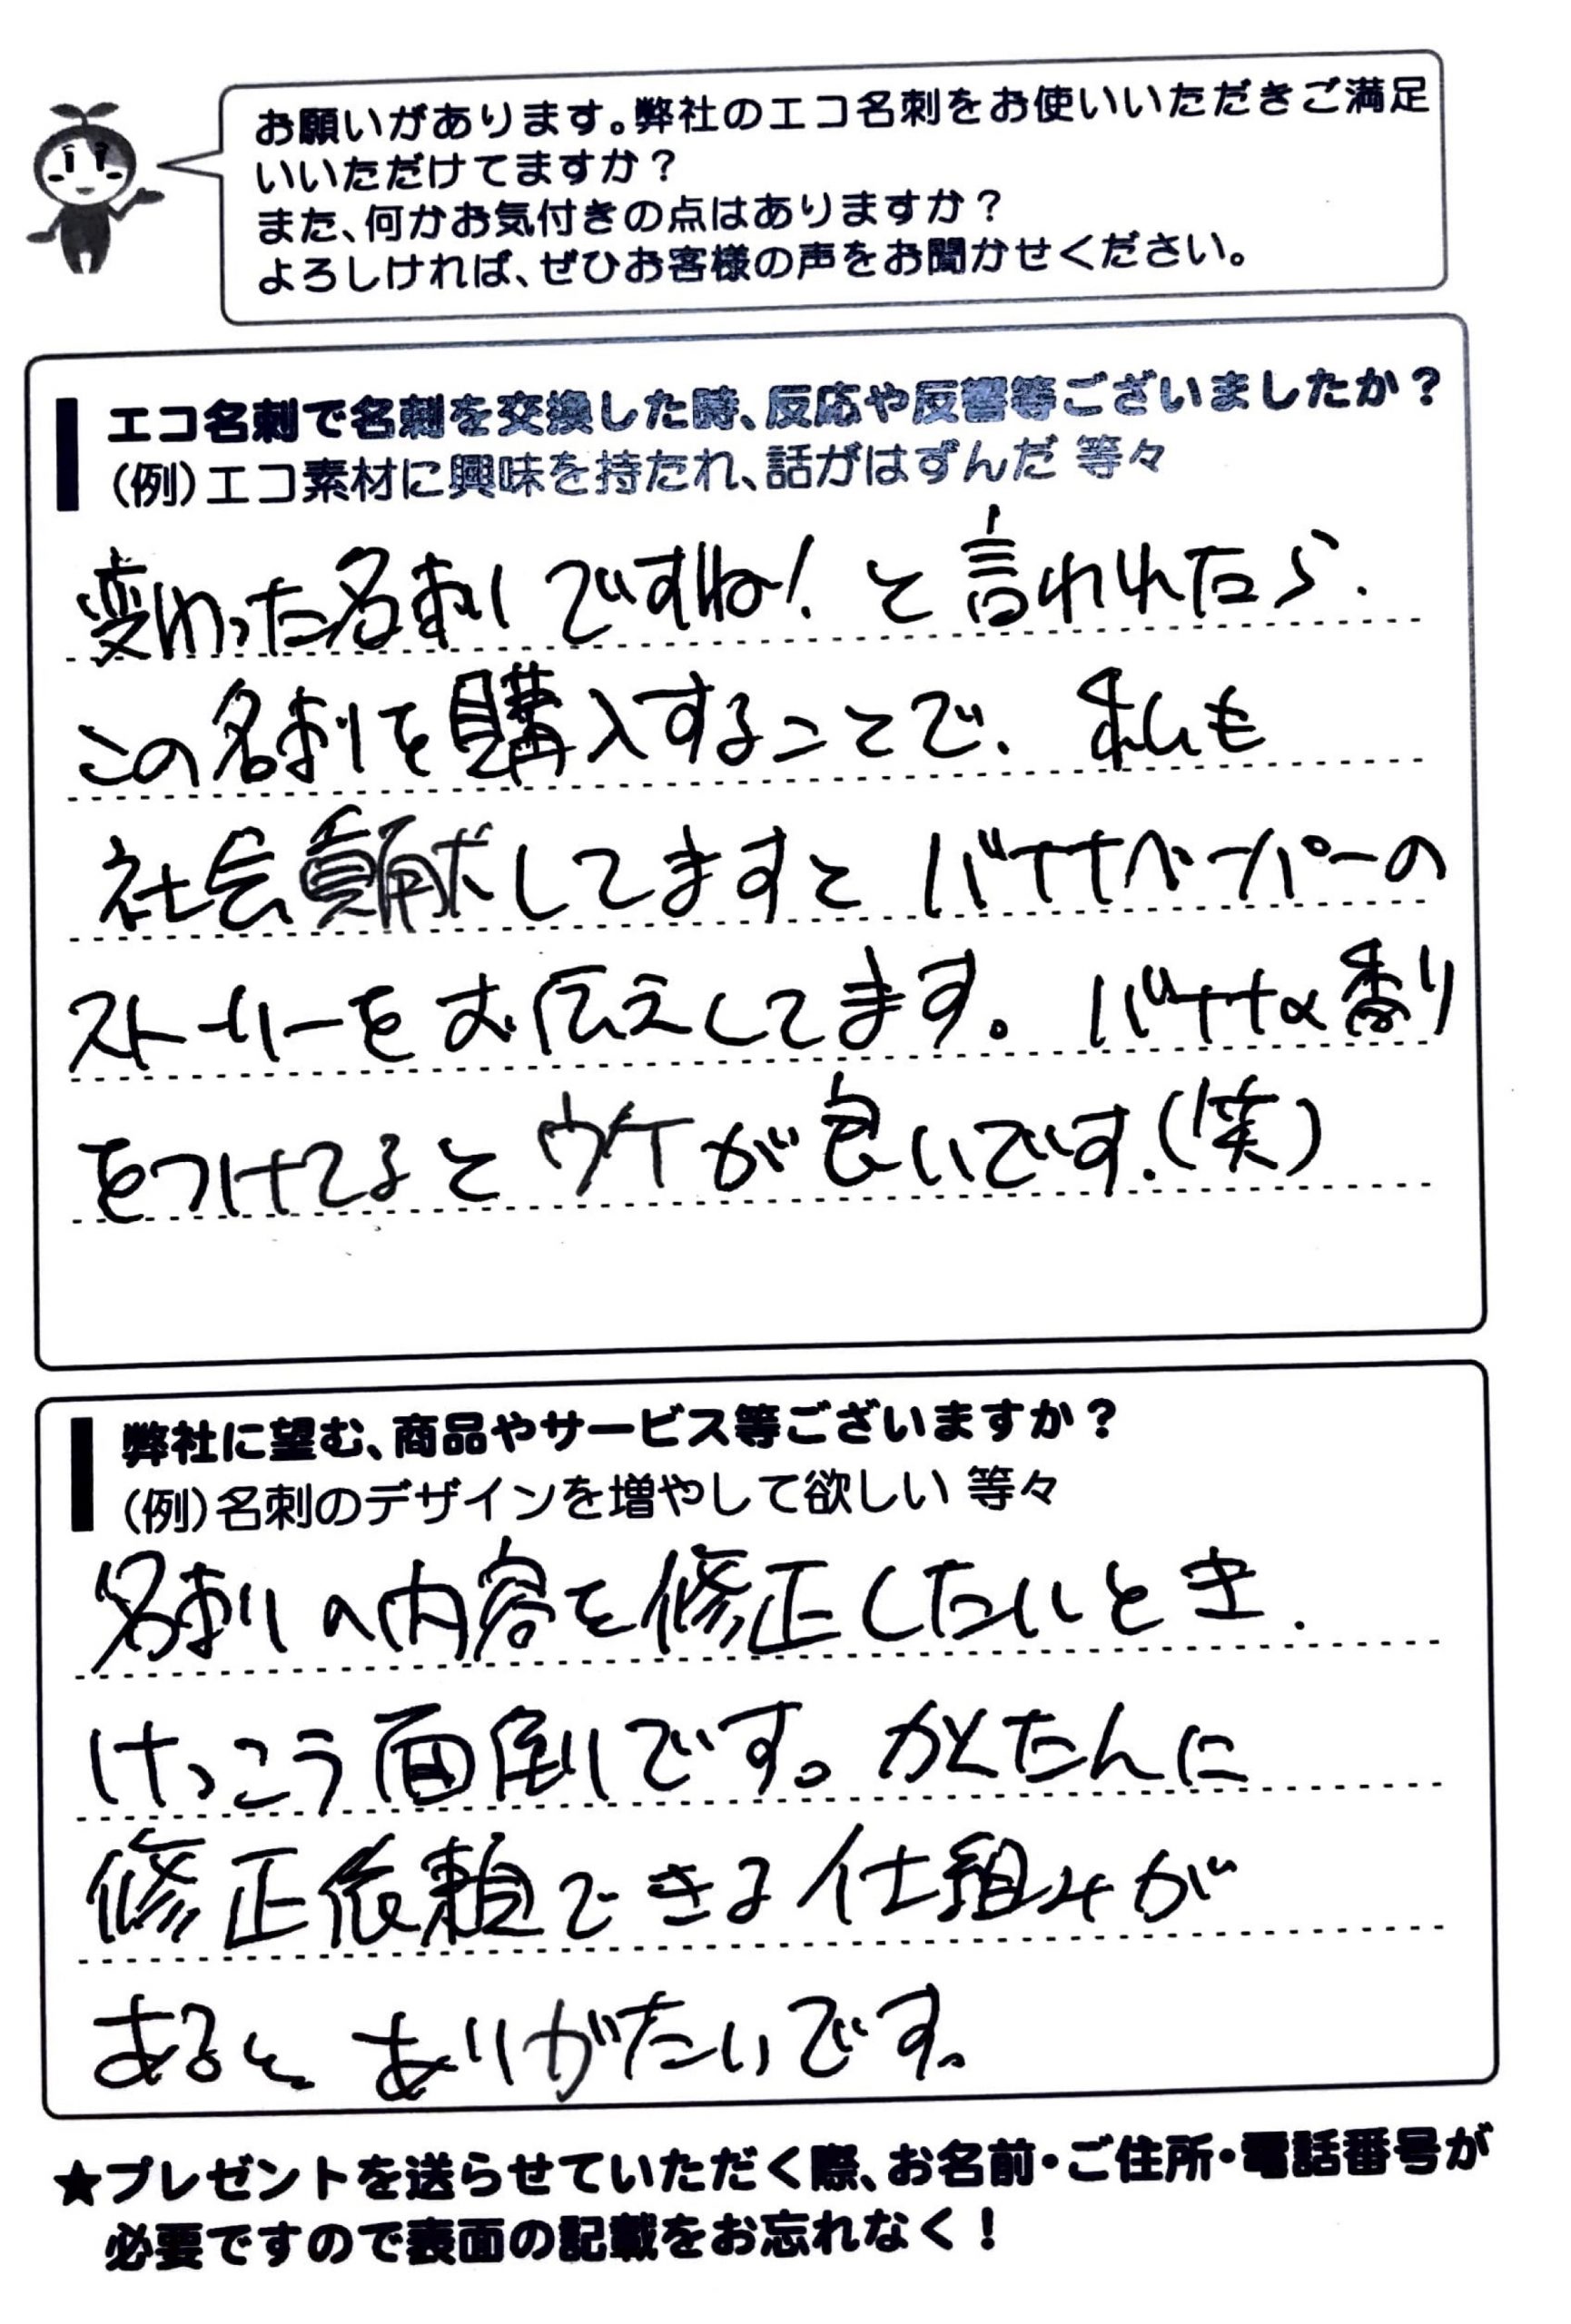 お願いがあります。弊社のエコ名刺をお使いいただきご満足
いいただけてますか？
また、何かお気付きの点はありますか？
よろしければ、ぜひお客様の声をお聞かせください。
エコ名刺で名刺を交換した時、反応や反響等ございましたか？
（例）エコ素材に興味を持たれ、話がはずんだ 等々
変わった名刺ですね！と言われたら、
この名刺を購入することで、私も
社会貢献してますと バナナペーパーの
ストーリーをお伝えしてます。バナナの香り
をつけてるとウケが良いです。（笑）
弊社に望む、商品やサービス等ございますか？
（例）名刺のデザインを増やして欲しい 等々
名刺の内容を修正したいとき、
けっこう面倒です。かんたんに
修正依頼できる仕組みが
あると ありがたいです。
★プレゼントを送らせていただく際、お名前・ご住所・電話番号が
必要ですので表面の記載をお忘れなく！